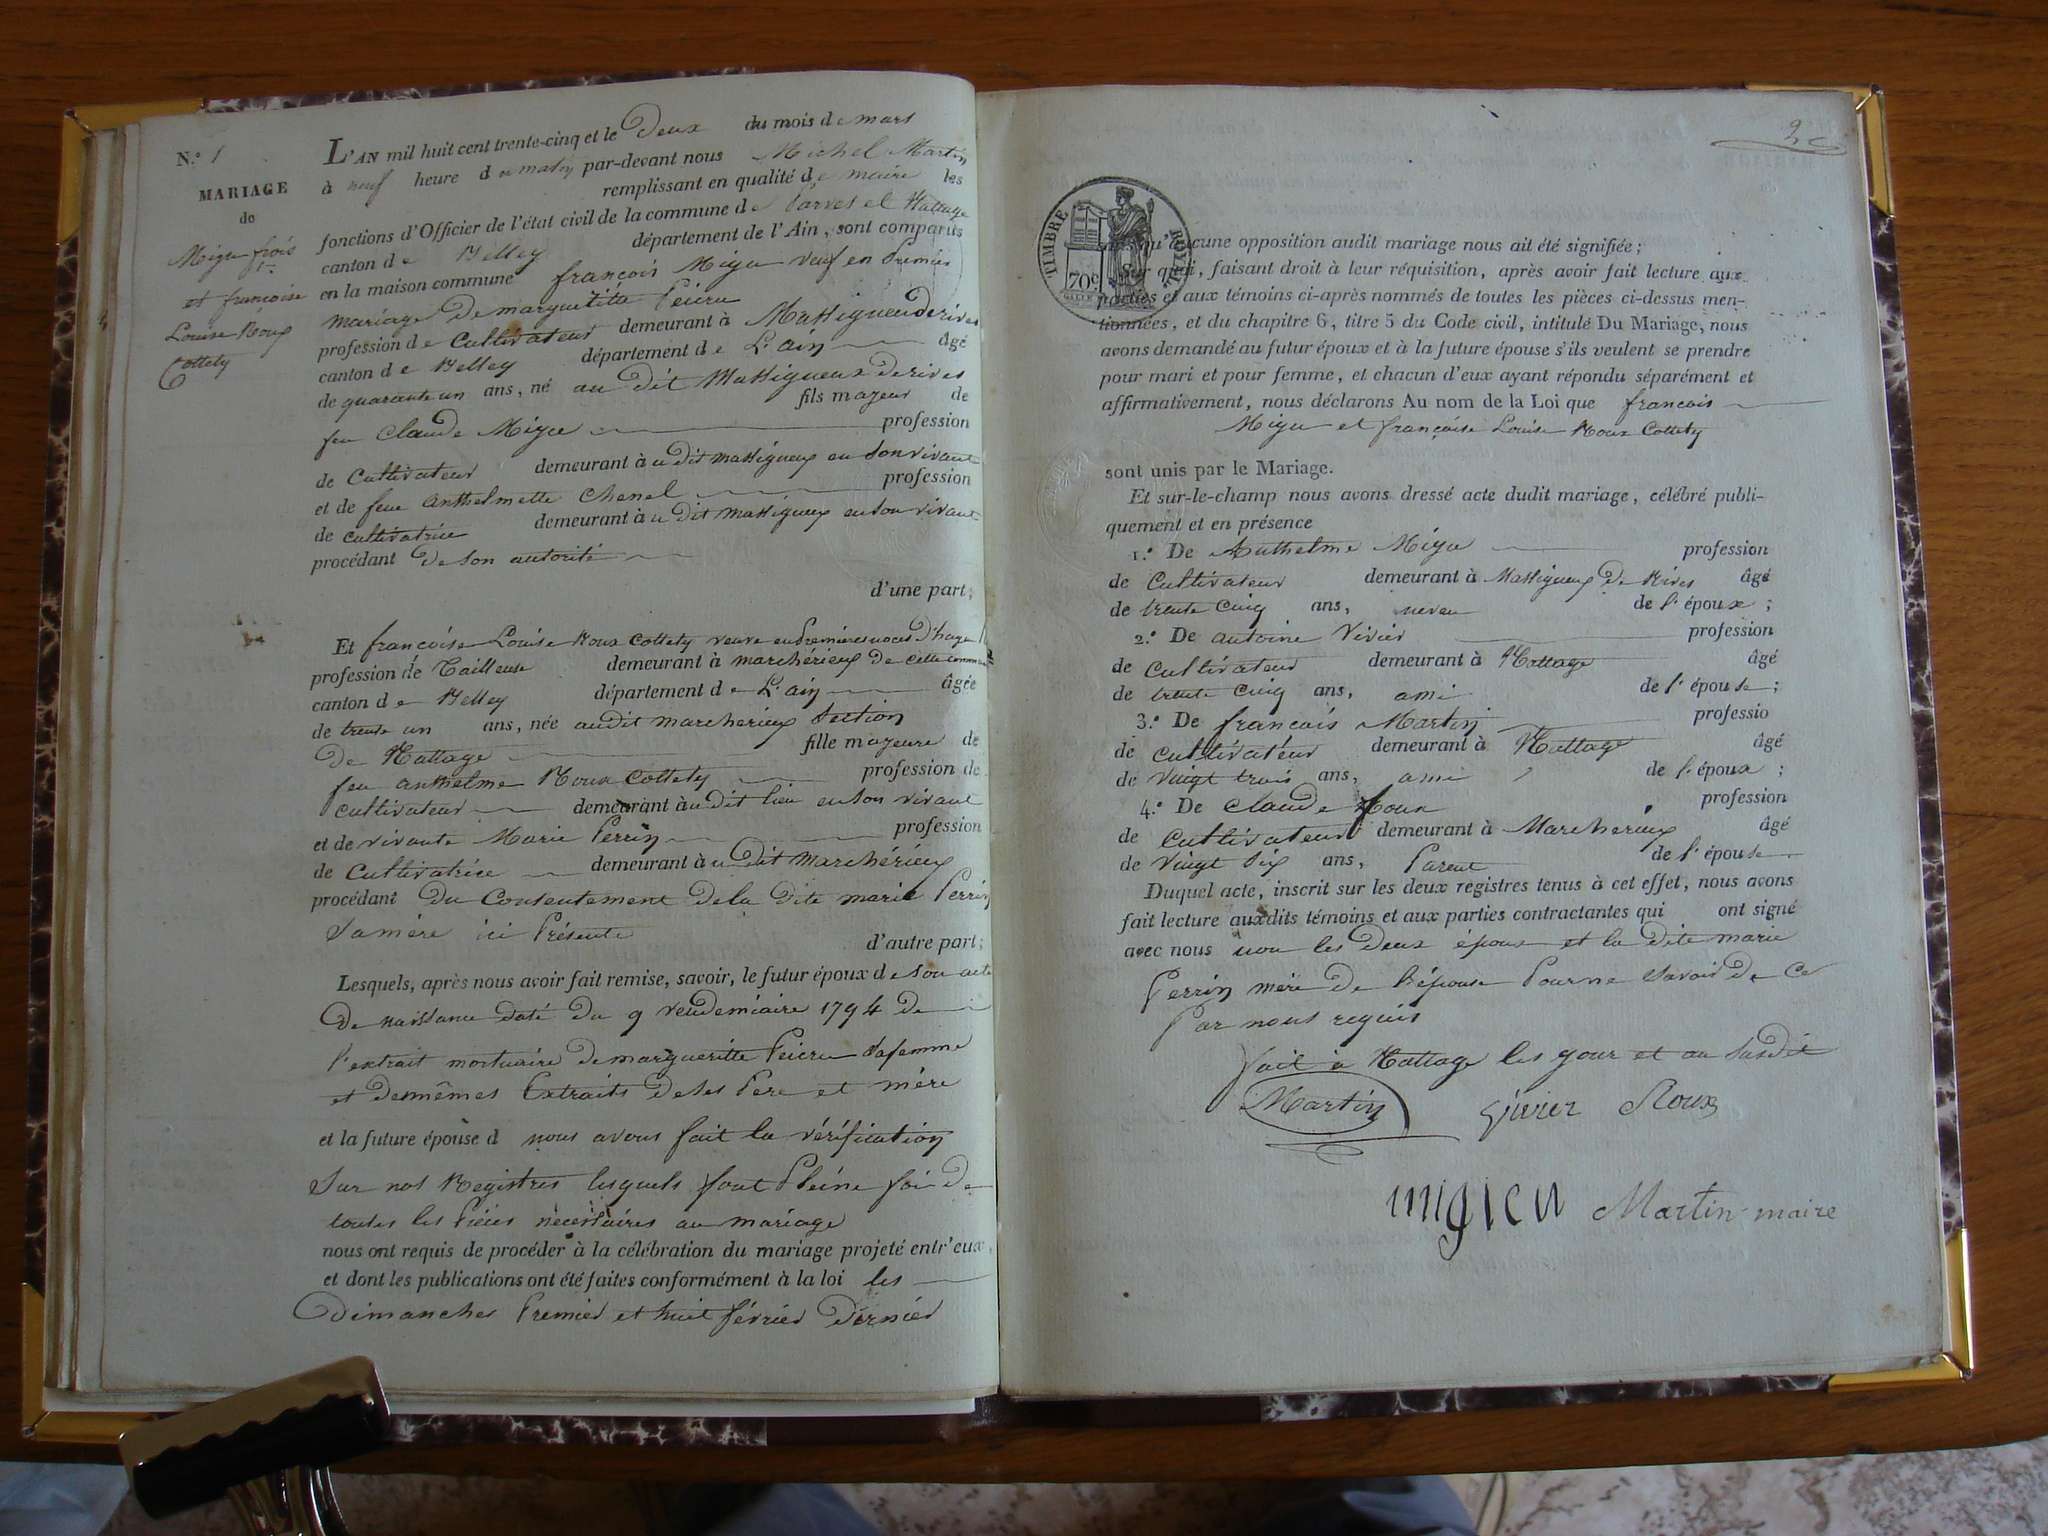 N.o 1
MARIAGE
de
Migieu frois
et françoise
Louise Roux
Cottety
L'AN mil huit cent trente-cinq et le Deux du mois de mars
à neuf heure du matin par-devant nous Michel Martin
remplissant en qualité de maire les
fonctions d'Officier de l'état civil de la commune de Parves et Nattage
canton de Belley département de l'Ain, sont comparus
en la maison commune françois Migieu veuf en Premier
mariage De margueritte
profession de Cultivateur demeurant à Massigneu de rives
canton de Belley département de L'ain âgé
de quarante un ans, né au dit Massigneux de rives
fils majeur de
feu Claude Migieu profession
de Cultivateur demeurant à u dit massigneux en son vivant
et de feue anthelmette Chenel profession
de cultivatrice demeurant à u dit massigneux en son vivant
procédant de son autorité
d'une part;
Et françoise Louise Roux Cottety veuve en Premières noces D'
profession de Tailleuse demeurant à marchérieux de cette commune
canton de Belley département de L'ain âgée
de trente un ans, née audit marcherieux Section
De Nattage fille majeure de
feu anthelme Roux Cottety profession de
cultivateur demeurant à u dit lieu en son vivant
et de vivante Marie Perrin profession
de Cultivatrice demeurant à u dit marchérieux
procédant du Consentement De la Dite marie Perrin
Sa mère ici Présente
d'autre part;
Lesquels, après nous avoir fait remise, savoir, le futur époux de son acte
De naissance daté Du 9 vendemiaire 1794 de
l'extrait mortuaire De margueritte sa femme
et de mêmes Extraits De ses Pere et mère
et la future épouse d nous avons fait la vérification
Sur nos Registres lesquels font Pleine foi De
toutes les Pièces nécessaires au mariage
nous ont requis de procéder à la célébration du mariage projeté entr'eux,
et dont les publications ont été faites conformément à la loi les
Dimanches Premier et huit février Dernier
2
TIMBRE ROYAL
70c
qu'aucune opposition audit mariage nous ait été signifiée;
Sur quoi, faisant droit à leur réquisition, après avoir fait lecture aux
parties et aux témoins ci-après nommés de toutes les pièces ci-dessus men-
tionnées, et du chapitre 6, titre 5 du Code civil, intitulé Du Mariage, nous
avons demandé au futur époux et à la future épouse s'ils veulent se prendre
pour mari et pour femme, et chacun d'eux ayant répondu séparément et
affirmativement, nous déclarons Au nom de la Loi que francois
Migieu et françoise Louise Roux Cottety
sont unis par le Mariage.
Et sur-le-champ nous avons dressé acte dudit mariage, célébré publi-
quement et en présence
1.o De Anthelme Migieu profession
de Cultivateur demeurant à Massigneux de Rives âgé
de trente Cinq ans, neveu de l'époux;
2.o De antoine Vivier profession
de Cultivateur demeurant à Nattage âgé
de trente cinq ans, ami de l'épouse;
3.o De francois Martin professio
de cultivateur demeurant à Nattage âgé
de vingt trois ans, ami de l'époux;
4.o De Claude Roux profession
de Cultivateur demeurant à Marcherieux âgé
de vingt six ans, Parent de l'épouse
Duquel acte, inscrit sur les deux registres tenus à cet effet, nous avons
fait lecture auxdits témoins et aux parties contractantes qui ont signé
avec nous non les Deux époux et la dite marie
Perrin mère de l'épouse Pour ne savoir De Ce
Par nous requis
fait à Nattage les jour et an susdit
Martin Vivier Roux
migieu Martin maire